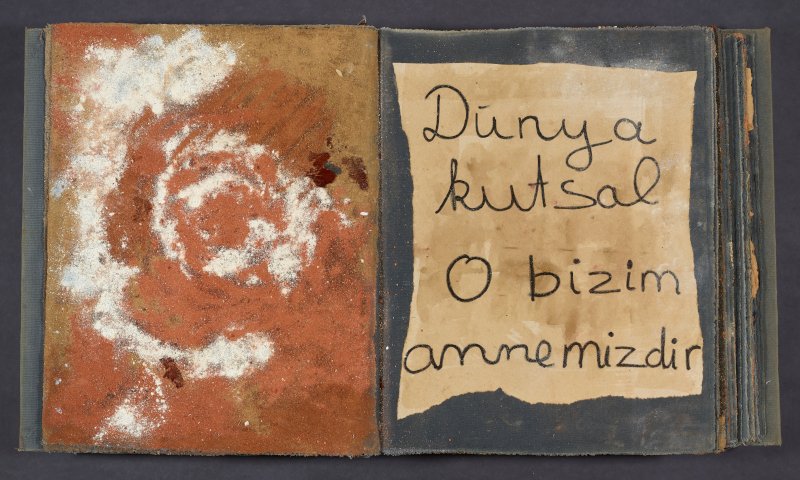 Dünya
kutsal
O bizim
annemizdir